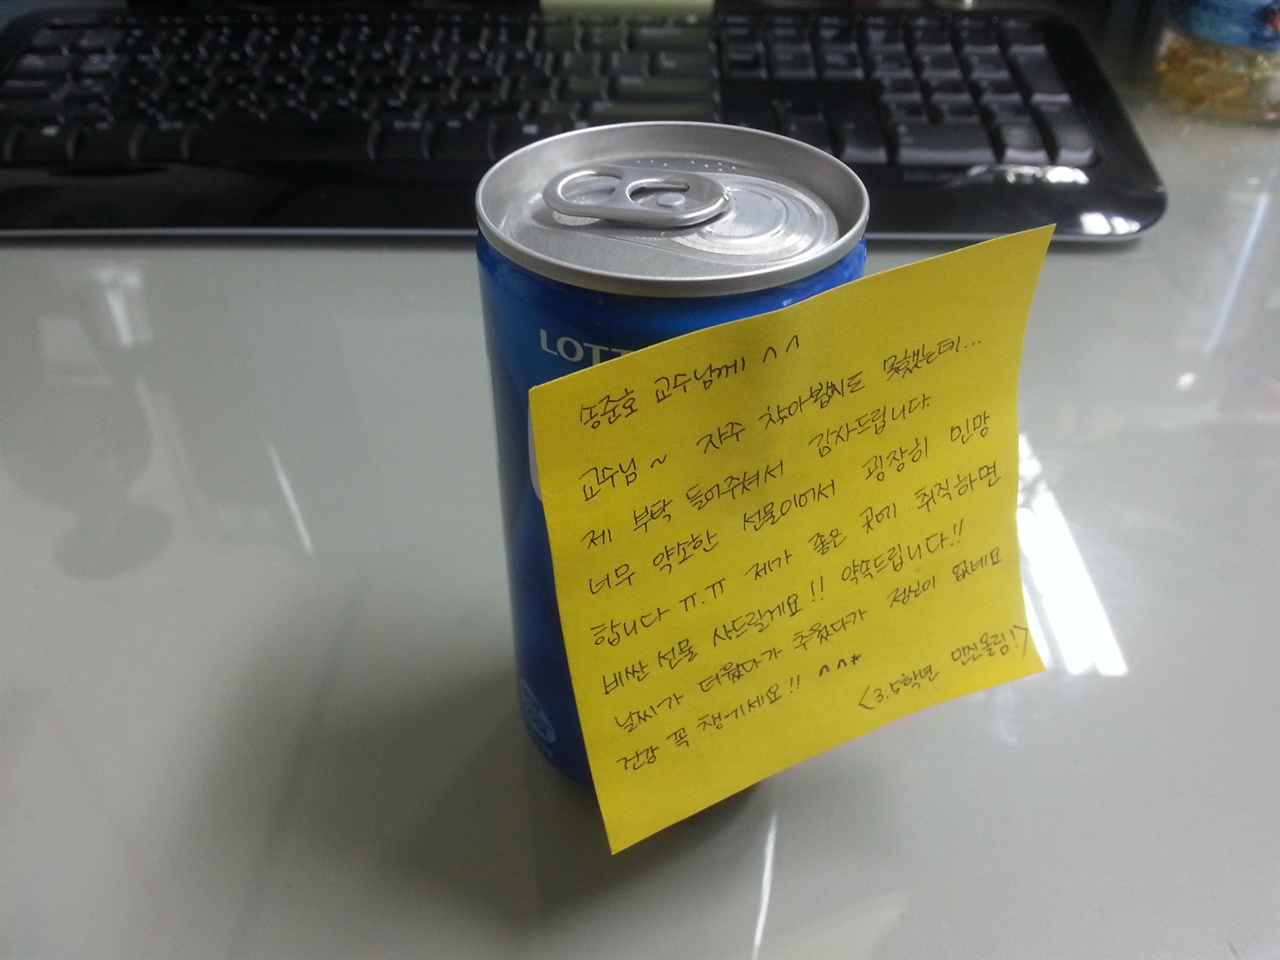 LOTT
송준호 교수님께 ^^
교수님 ~ 자주 찾아뵙지도 못했는데...
제 부탁 들어주셔서 감사드립니다.
너무 약소한 선물이어서 굉장히 민망
합니다 ㅠ.ㅠ 제가 좋은 곳에 취직하면
비싼 선물 사드릴게요!! 약속드립니다.!!
날씨가 더웠다가 추웠다가 정신이 없네요
건강 꼭 챙기세요!! ^^*
<3.5학년 만진올림!>